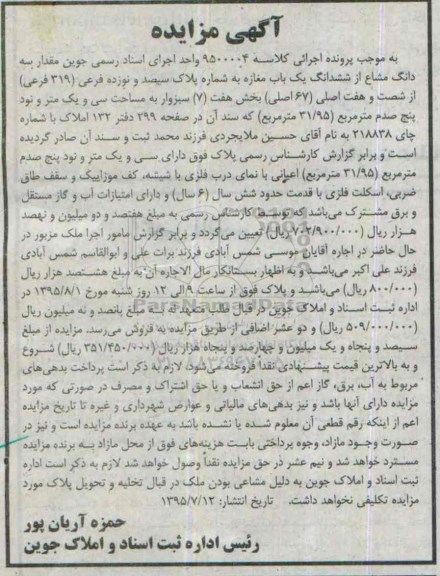 آگهی مزایده
به موجب پرونده اجرائی کلاسه ۹۵۰۰۰۰۴ واحد اجرای اسناد رسمی جوین مقدار سه
دانگ مشاع از ششدانگ یک باب مغازه به شماره پلاک سیصد و نوزده فرعی (۳۱۹ فرعی)
از شصت و هفت اصلی (۶۷ اصلی) بخش هفت (۷) سبزوار به مساحت سی و یک متر و نود
پنج صدم مترمربع (۳۱/۹۵ مترمربع) که سند آن در صفحه ۲۹۹ دفتر ۱۳۲ املاک با شماره
چاپی ۲۱۸۸۳۸ به نام آقای حسین ملایجردی فرزند محمد ثبت و سند آن صادر گردیده
است و برابر گزارش کارشناس رسمی پلاک فوق دارای سی و یک متر و نود پنج صدم
مترمربع (۳۱/۹۵ مترمربع) اعیانی با نمای درب فلزی با شیشه، کف موزاییک و سقف طاق
ضربی، اسکلت فلزی با قدمت حدود شش سال (۶ سال) و دارای امتیازات آب و گاز مستقل
و برق مشترک می‌باشد که توسط کارشناس رسمی به مبلغ هفتصد و دو میلیون و نهصد
هزار ریال (۷۰۲/۹۰۰/۰۰۰ ریال) تعیین می‌گردد و برابر گزارش مامور اجرا ملک مزبور در
حال حاضر در اجاره آقایان موسی شمس آبادی فرزند برات علی و ابوالقاسم شمس آبادی
فرزند علی اکبر می‌باشد و به اظهار بستانکار مال الاجاره آن به مبلغ هشتصد هزار ریال
(۸۰۰/۰۰۰ ریال) می‌باشد و پلاک فوق از ساعت ۹ الی ۱۲ روز شنبه مورخ ۱۳۹۵/۸/۱ در
اداره ثبت اسناد و املاک جوین در قبال طلب متعهد له به مبلغ پانصد و نه میلیون ریال
(۵۰۹/۰۰۰/۰۰۰ ریال) و دو عشر اضافی از طریق مزایده به فروش می‌رسد. مزایده از مبلغ
سیصد و پنجاه و یک میلیون و چهارصد و پنجاه هزار ریال (۳۵۱/۴۵۰/۰۰۰ ریال) شروع
و به بالاترین قیمت پیشنهادی نقداً فروخته می‌شود، لازم به ذکر است پرداخت بدهی‌های
مربوط به آب، برق، گاز اعم از حق انشعاب و یا حق اشتراک و مصرف در صورتی که مورد
مزایده دارای آنها باشد و نیز بدهی‌های مالیاتی و عوارض شهرداری و غیره تا تاریخ مزایده
اعم از اینکه رقم قطعی آن معلوم شده یا نشده باشد به عهده برنده مزایده است و نیز در
صورت وجود مازاد، وجوه پرداختی بابت هزینه‌های فوق از محل مازاد به برنده مزایده
مسترد خواهد شد و نیم عشر در حق مزایده نقداً وصول خواهد شد لازم به ذکر است اداره
ثبت اسناد و املاک جوین به دلیل مشاعی بودن ملک در قبال تخلیه و تحویل پلاک مورد
مزایده تکلیفی نخواهد داشت. تاریخ انتشار: ۱۳۹۵/۷/۱۲
حمزه آریان پور
رئیس اداره ثبت اسناد و املاک جوین